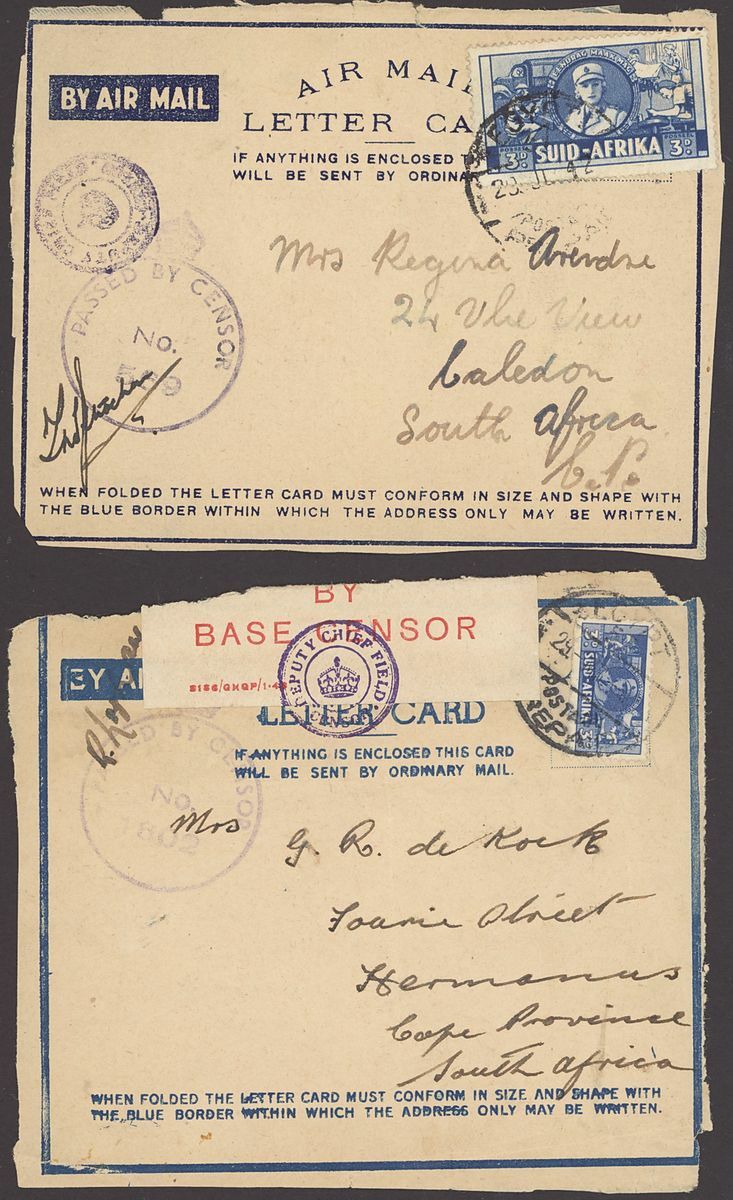 BY AIR MAIL
AIR MAIL
LETTER CA
IF ANYTHING IS ENCLOSED T
WILL BE SENT BY ORDINA
SUID-AFRIKA
POSSEEL
3D
POSSEEL
3D
PASSED BY CENSOR
No.
Mrs Regina Arendse
24 Vlei View
Caledon
South Africa
C.P.
WHEN FOLDED THE LETTER CARD MUST CONFORM IN SIZE AND SHAPE WITH
THE BLUE BORDER WITHIN WHICH THE ADDRESS ONLY MAY BE WRITTEN.
BY
BASE CENSOR
DEPUTY CHIEF FIELD
CENSOR
EGYPT
SUID-AFRIKA
3D
3D
BY AI
LETTER CARD
IF ANYTHING IS ENCLOSED THIS CARD
WILL BE SENT BY ORDINARY MAIL.
PASSED BY CENSOR
No.
1802
Mrs G. R. de Kock
Hermanus
Cape Province
South Africa
WHEN FOLDED THE LETTER CARD MUST CONFORM IN SIZE AND SHAPE WITH
THE BLUE BORDER WITHIN WHICH THE ADDRESS ONLY MAY BE WRITTEN.